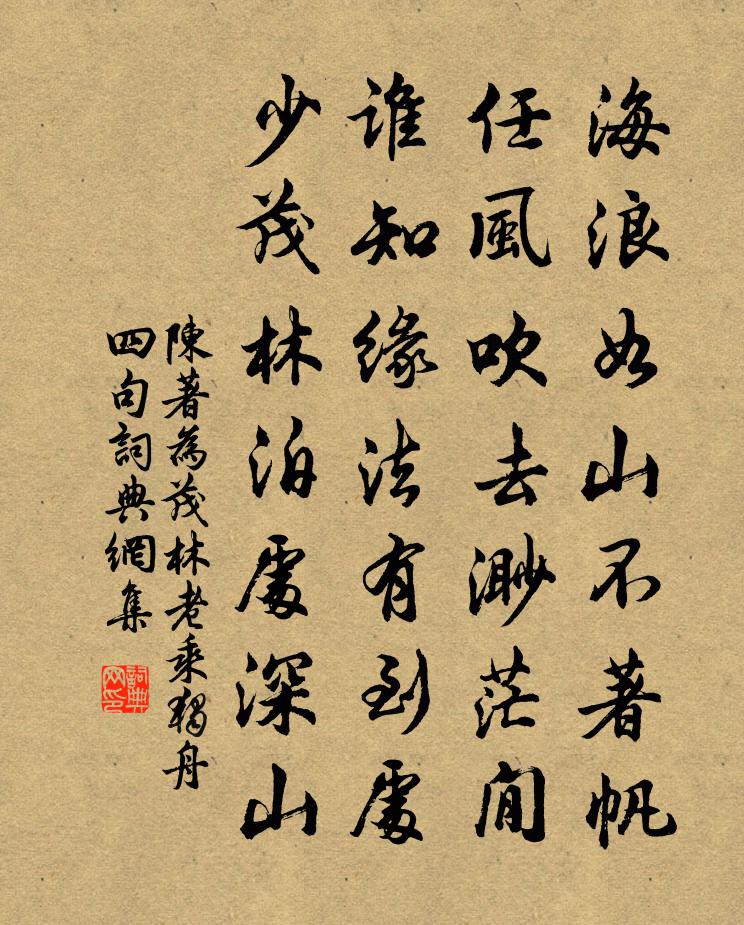 海浪如山不著帆
任風吹去渺茫閒
誰知緣法有到處
少茂林泊處深山
陳著為茂林老乘獨舟
四句詞典網集
詞典
网印